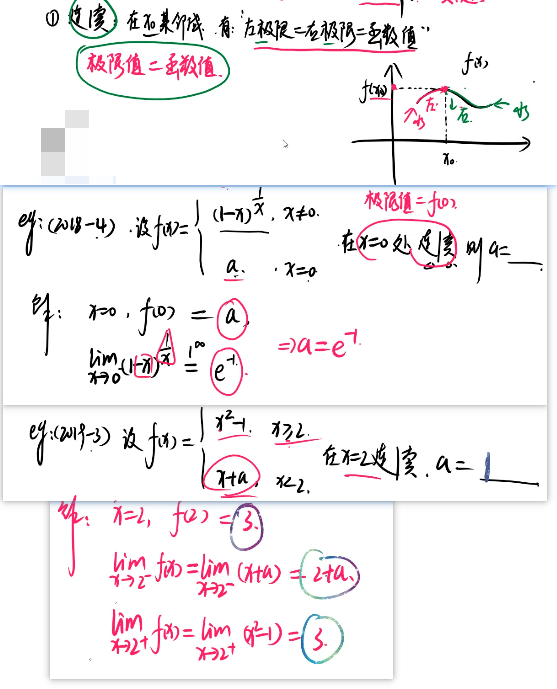 ① 连续: 在x₀某邻域 有:"左极限=右极限=函数值"
极限值=函数值.
f(x)
f(x₀)
左 右
x₀
极限值=f(0).
eg:(2018-4). 设f(x)= { (1-x)^{1/x}, x≠0.
a. , x=0
在x=0处连续 则 a=__
解: x=0, f(0) = a.
lim_{x→0} (1-x)^{1/x} =^{1^∞} e⁻¹. ⇒a=e⁻¹
eg:(2019-3) 设 f(x)= { x²-1, x≥2.
x+a, x<2.
在x=2连续. a= 1
解: x=2, f(2)=3.
lim_{x→2⁻} f(x)=lim_{x→2⁻} (x+a) = 2+a.
lim_{x→2⁺} f(x)=lim_{x→2⁺} (x²-1) = 3.